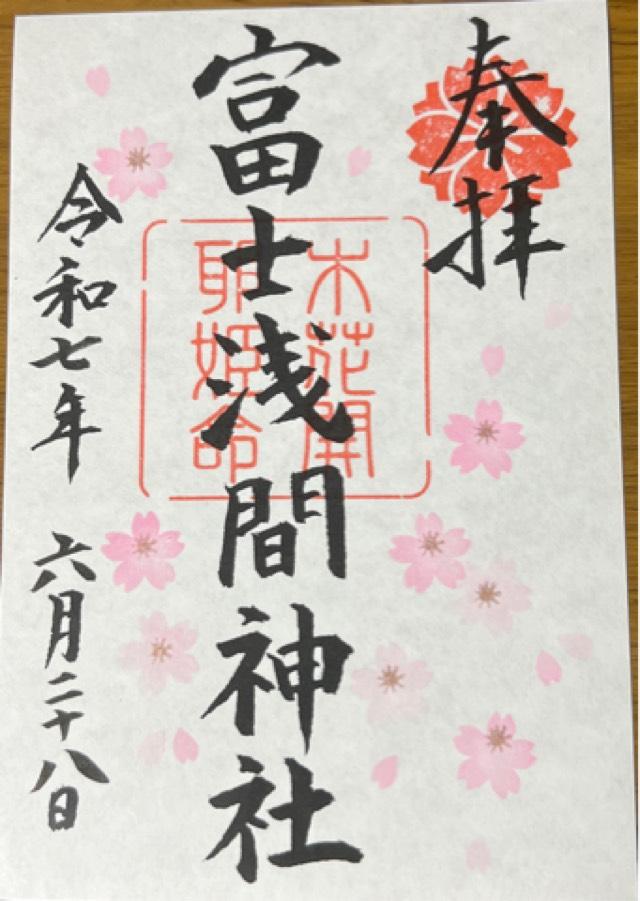 奉拝
富士浅間神社
木花開
耶姫命
令和七年 六月二十八日